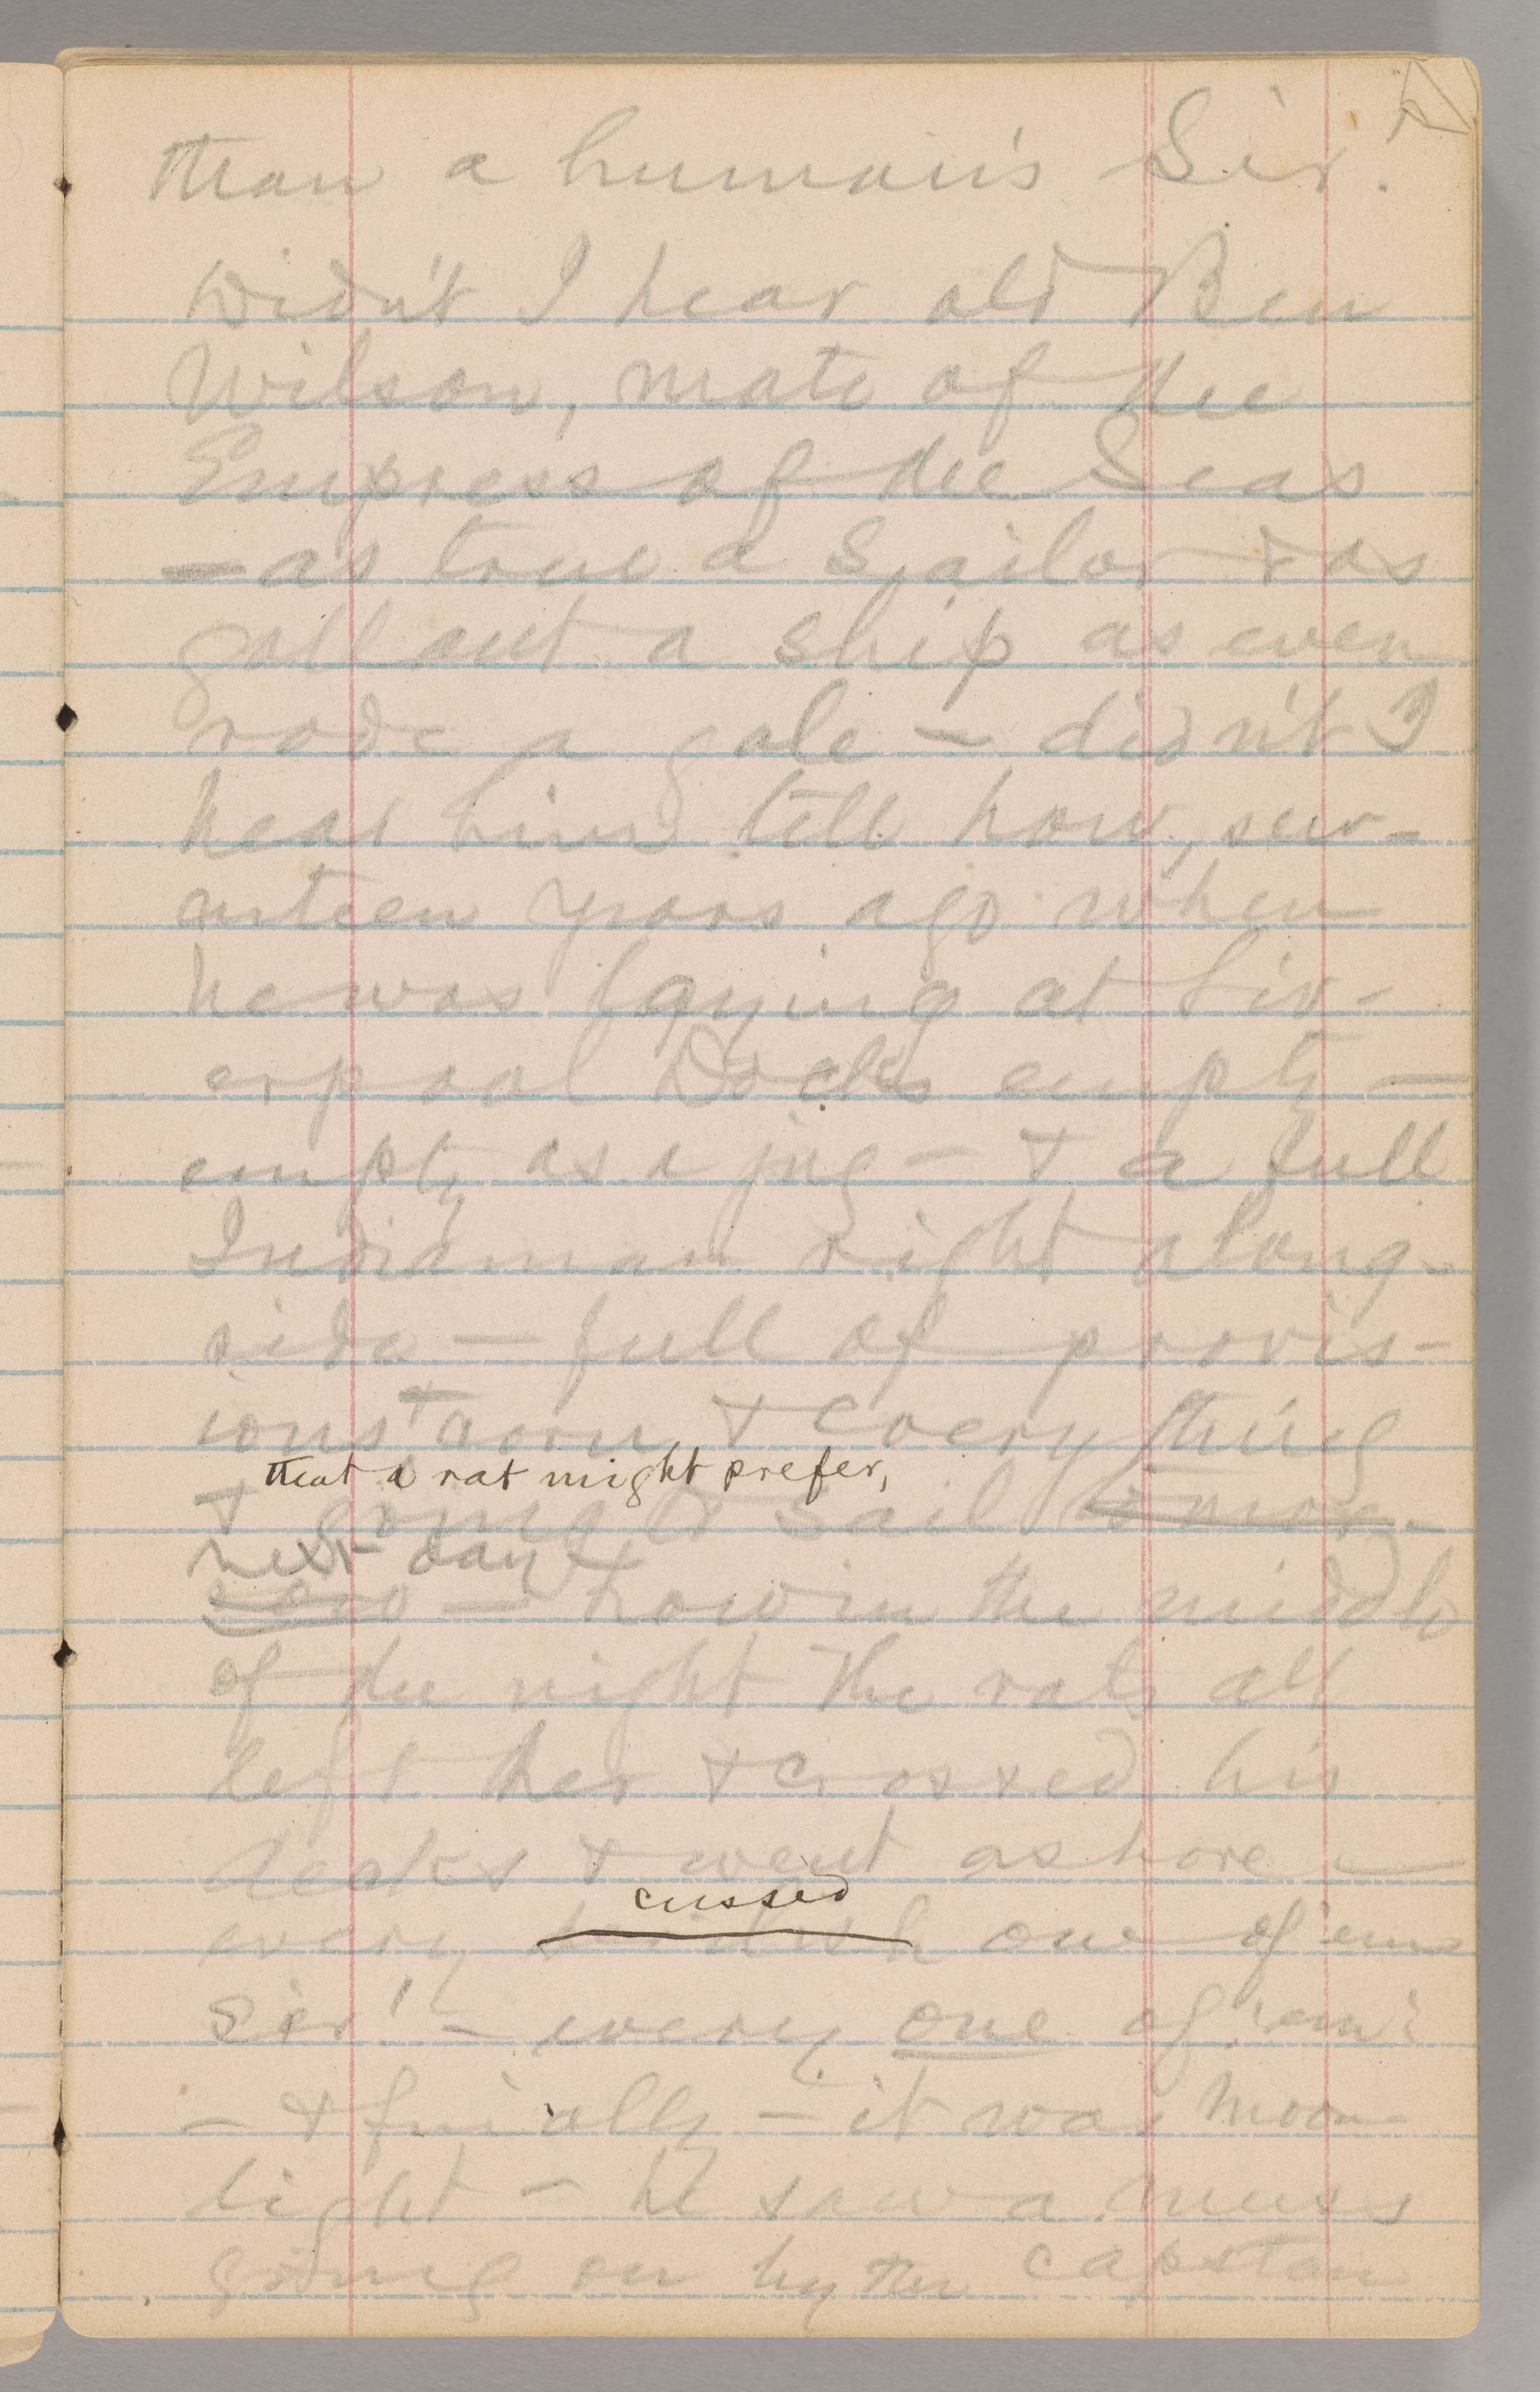 than a human's Sir!
Didn't I hear old Ben
Wilson, mate of the
Empress of the Seas
— as true a Sailor & as
gallant a ship as ever
rode a gale — didn't I
hear him tell how, sev-
enteen years ago when
he was laying at Liv-
erpool Docks empty —
empty as a jug — & a full
Indiaman right along-
side — full of provis-
ions & corn & everything
that a rat might prefer,
& going to sail to-mor-
next day &
row — how in the middle
of the night the rats all
left her & crossed his
decks & went ashore —
cussed
every one of 'em
Sir! — every one of 'em!
— & finally — it was moon-
light — he saw a muss
going on by the capstan